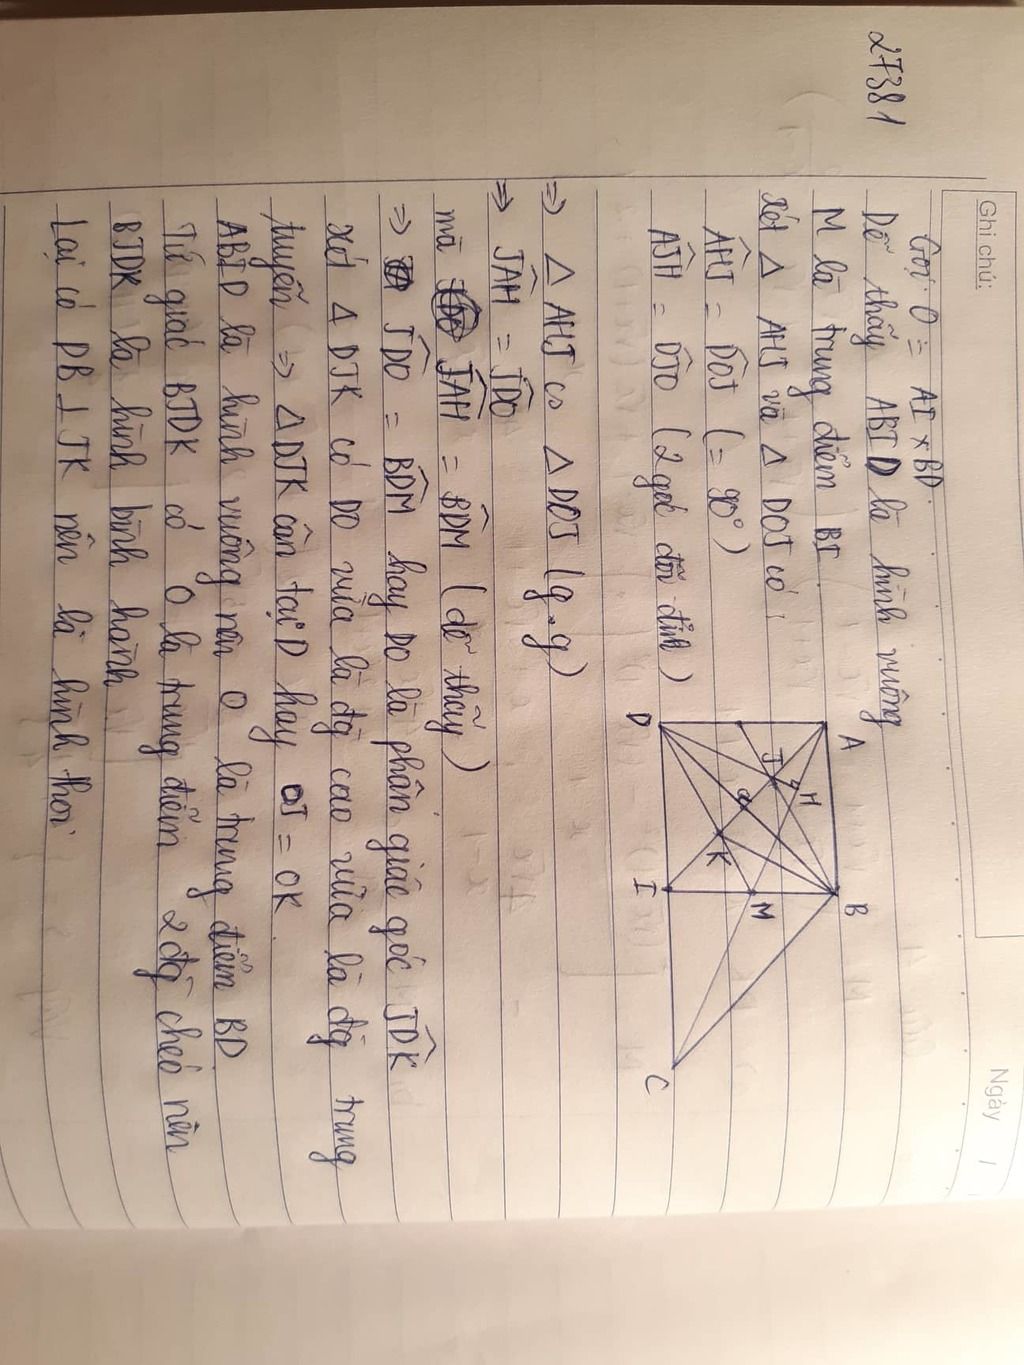 Ghi chú:
Ngày /
27381
Gọi O = AI × BD.
Dễ thấy ABID là hình vuông
M là trung điểm BI.
Xét Δ AHJ và Δ DOJ có:
AĤJ = DÔJ (= 90°)
AĴH = DĴO (2 góc đối đỉnh)
⇒ Δ AHJ ∽ Δ DOJ (g.g)
⇒ JÂH = JD̂O
mà JÂH = BD̂M (dễ thấy)
⇒ JD̂O = BD̂M hay DO là phân giác góc JD̂K
Xét Δ DJK có DO vừa là đg cao vừa là đg trung
tuyến ⇒ Δ DJK cân tại D hay OJ = OK
ABID là hình vuông nên O là trung điểm BD
Tứ giác BJDK có O là trung điểm 2 đg chéo nên
BJDK là hình bình hành
Lại có DB ⊥ JK nên là hình thoi
A
B
H
J
O
K
M
D
I
C